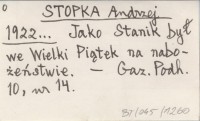 STOPKA Andrzej
1922... Jako Stanik był
we Wielki Piątek na nabo-
żeństwie. — Gaz. Podh.
10, nr 14.